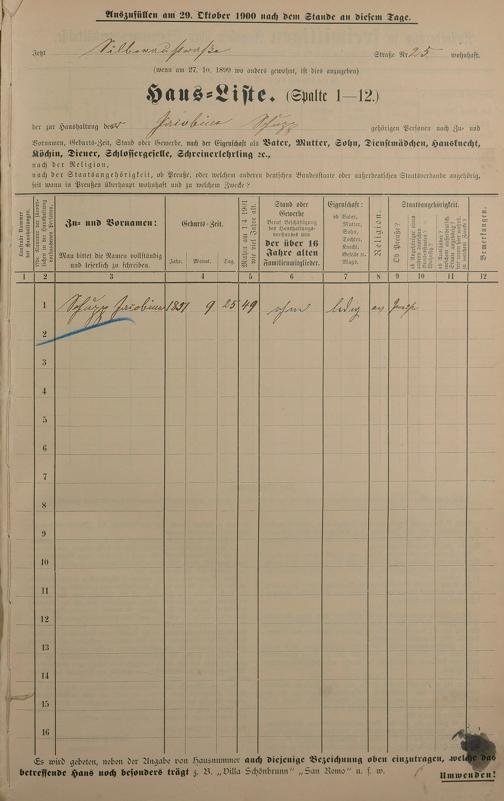 Auszufüllen am 29. Oktober 1900 nach dem Stande an diesem Tage.
Jetzt Silberaustraße Straße Nr. 25 wohnhaft.
(wenn am 27. 10. 1899 wo anders gewohnt, ist dies anzugeben)
Haus-Liste. (Spalte 1—12.)
der zur Haushaltung des Jacobine Schupp gehörigen Personen nach Zu- und
Vornamen, Geburts-Zeit, Stand oder Gewerbe, nach der Eigenschaft als Vater, Mutter, Sohn, Dienstmädchen, Hausknecht,
Köchin, Diener, Schlossergeselle, Schreinerlehrling ꝛc.,
nach der Religion,
nach der Staatsangehörigkeit, ob Preuße, oder welchem anderen deutschen Bundesstaate oder außerdeutschen Staatsverbande angehörig,
seit wann in Preußen überhaupt wohnhaft und zu welchem Zwecke?
Zu- und Vornamen:
Man bittet die Namen vollständig
und leserlich zu schreiben.
Geburts-Zeit.
Jahr. Monat. Tag.
Mithin am 1. 4. 1901
wie viel Jahre alt.
Stand oder
Gewerbe
der über 16
Jahre alten
Familienmitglieder.
Eigenschaft:
ob Vater,
Mutter,
Sohn,
Tochter,
Knecht,
Geselle u.
Magd.
Religion.
Staatsangehörigkeit.
Ob Preuße?
Bemerkungen.
1 2 3 4 5 6 7 8 9 10 11 12
1 Schupp Jacobine 1851 9 25 49 ohne ledig ev
2
3
4
5
6
7
8
9
10
11
12
13
14
15
16
Es wird gebeten, neben der Angabe von Hausnummer auch diejenige Bezeichnung oben einzutragen, welche das
betreffende Haus noch besonders trägt z. B. „Villa Schönbrunn" „San Remo" u. s. w.
Umwenden!